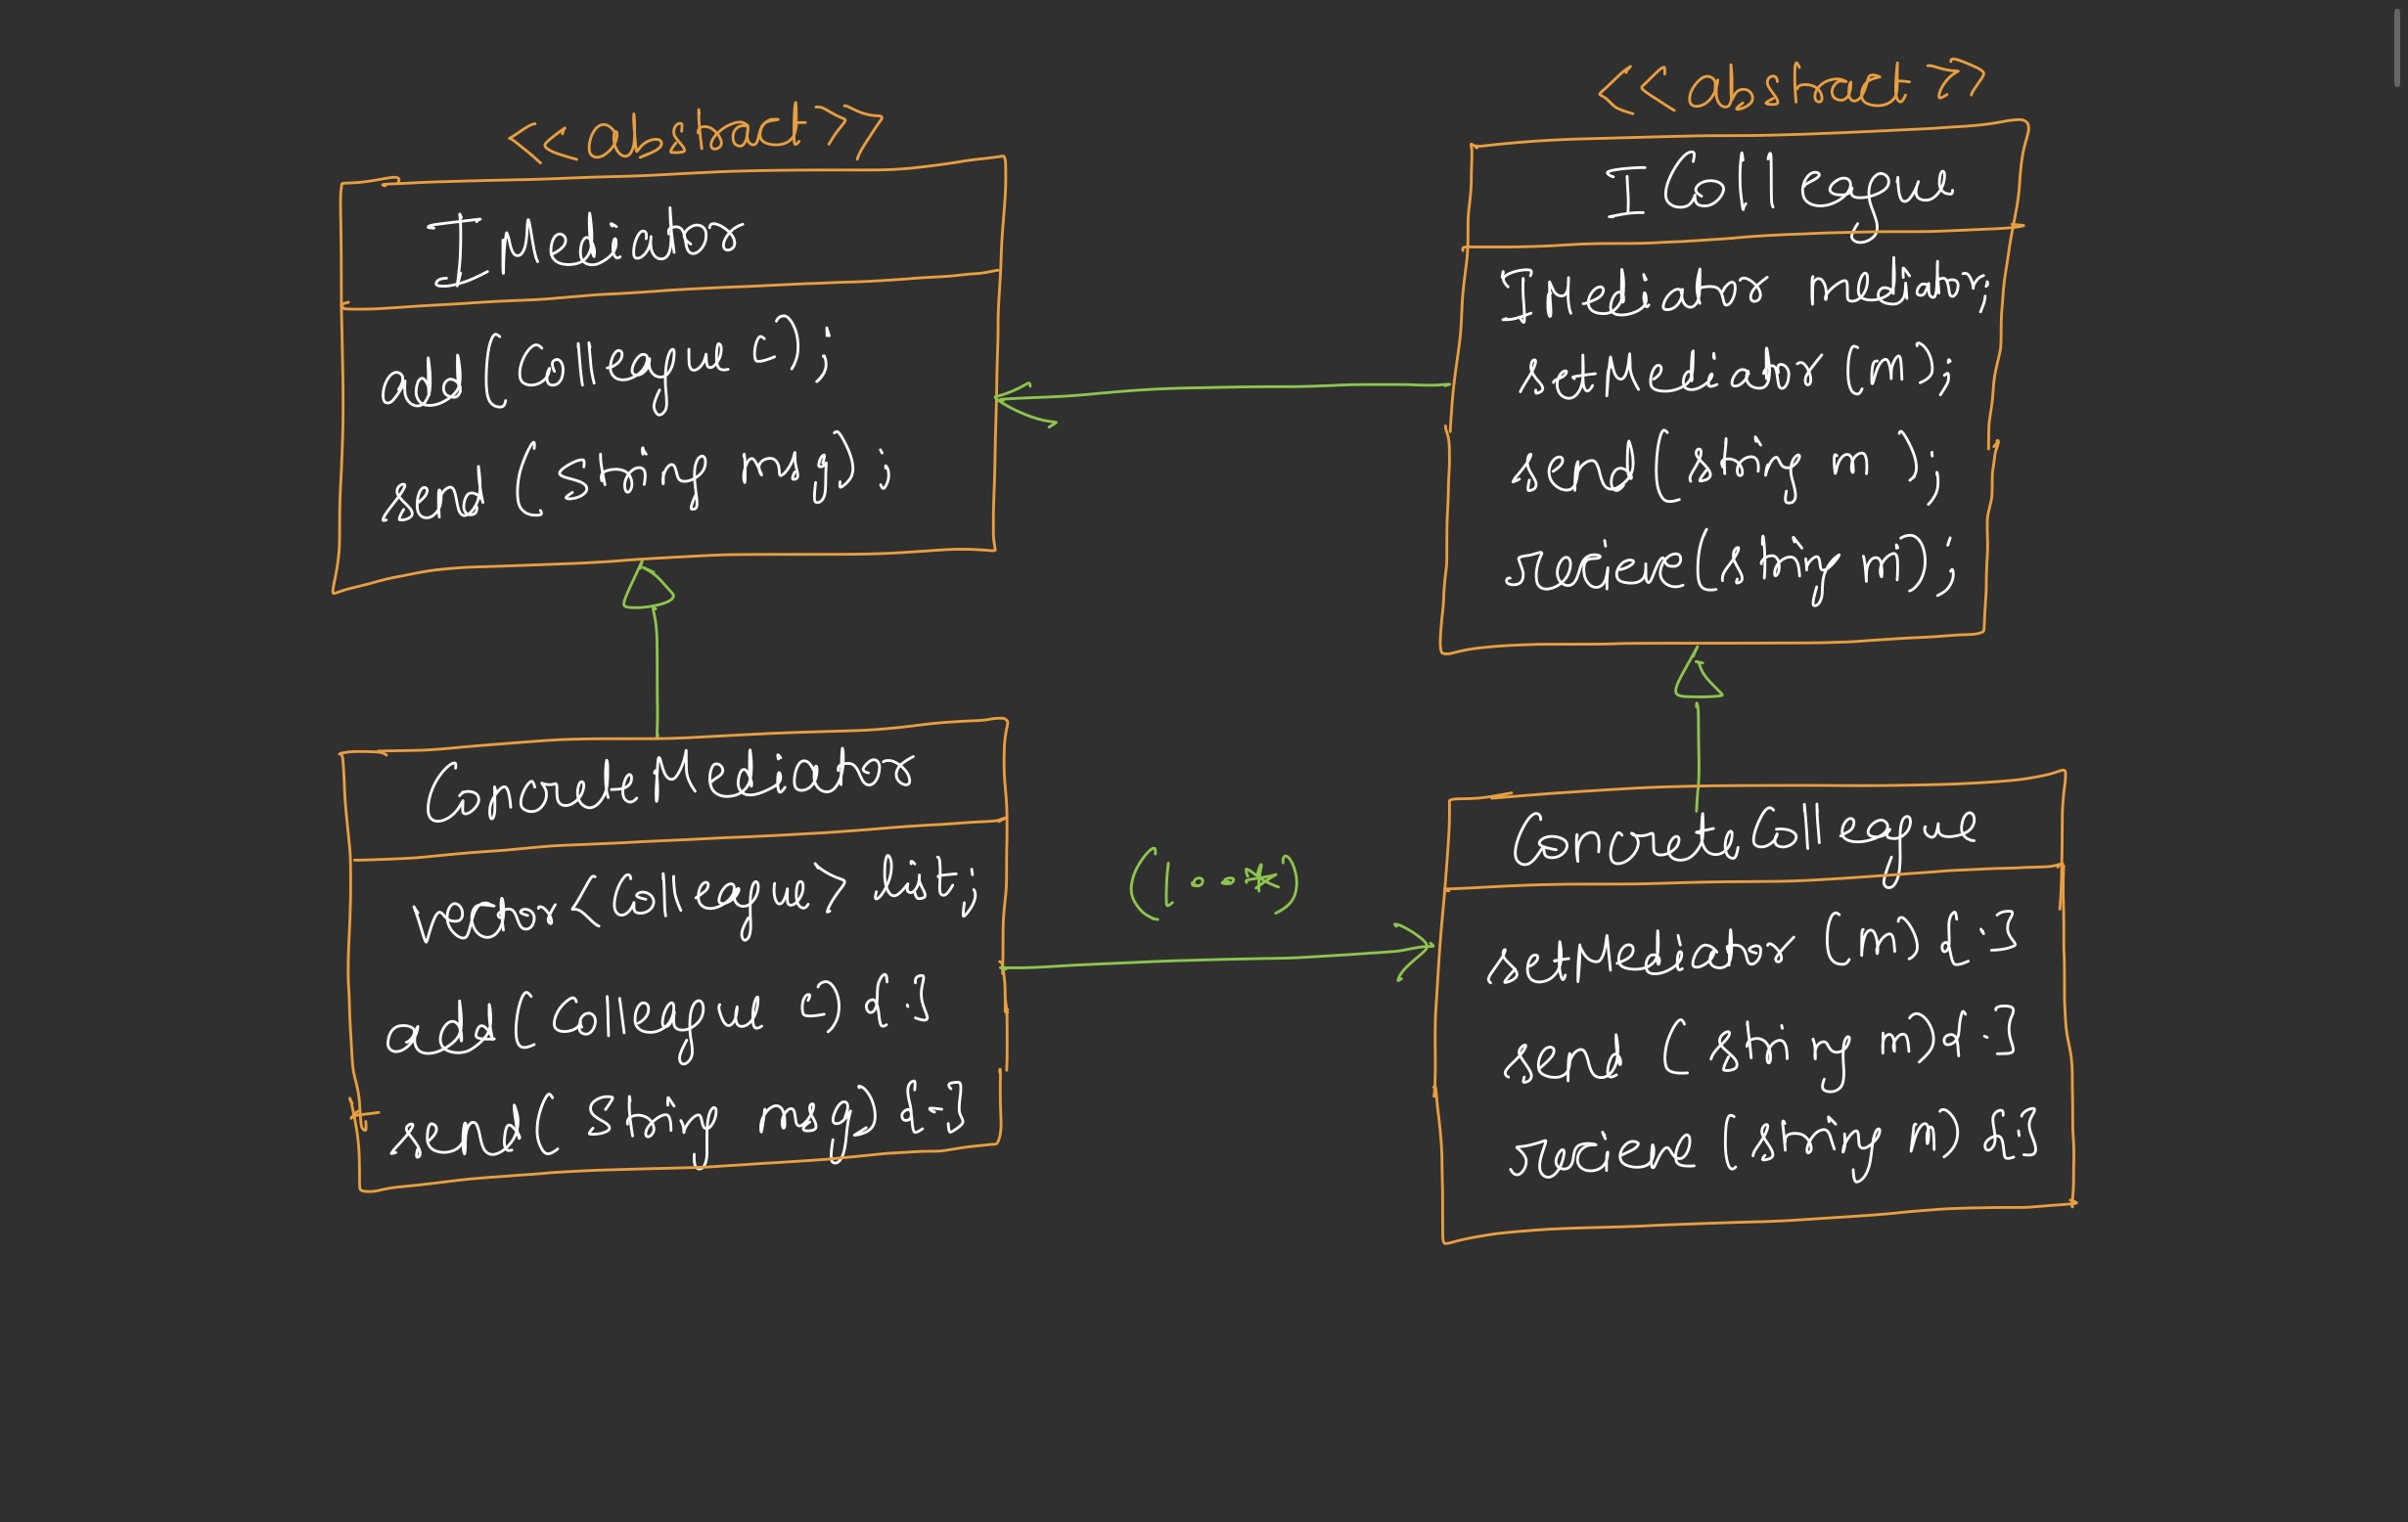 <<abstract>>
IMediator
add(Colleague c);
send(string msg);
<<abstract>>
IColleague
IMediator mediator;
setMediator(m);
send(string m);
recieve(string m);
ConcreteMediator
vector<Colleague> list;
add(Colleague c){:}
send(string msg){-}
(1..*)
ConcreteColleague
setMediator(m){:}
send(string m){:}
recieve(string m){:}